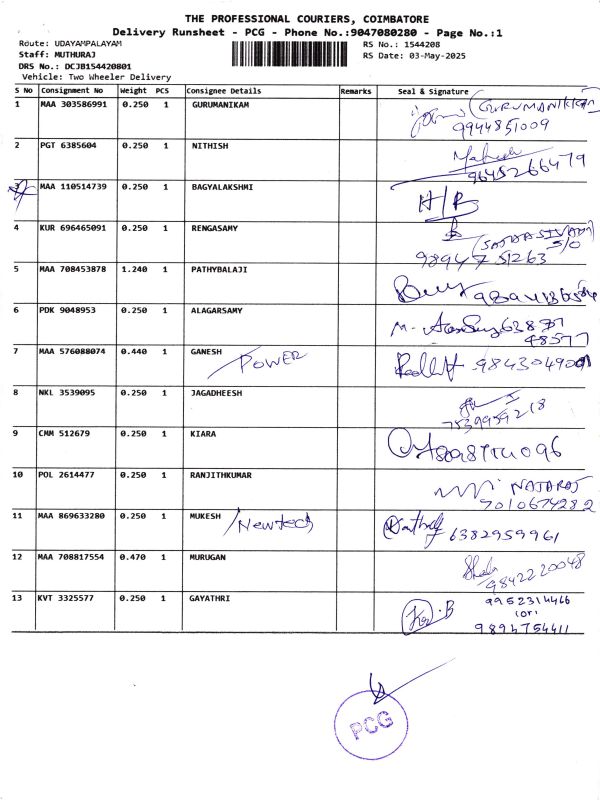 THE PROFESSIONAL COURIERS, COIMBATORE
Delivery Runsheet - PCG - Phone No.:9047080280 - Page No.:1
Route: UDAYAMPALAYAM
RS No.: 1544208
Staff: MUTHURAJ
RS Date: 03-May-2025
DRS No.: DCJB154420801
Vehicle: Two Wheeler Delivery
S No Consignment No Weight PCS Consignee Details Remarks Seal & Signature
1 MAA 303586991 0.250 1 GURUMANIKAM (GURUMANIKKAM)
9944851009
2 PGT 6385604 0.250 1 NITHISH
9645266479
3 MAA 110514739 0.250 1 BAGYALAKSHMI H/B
4 KUR 696465091 0.250 1 RENGASAMY (SATHASIVAM)
S/O
9894751263
5 MAA 708453878 1.240 1 PATHYBALAJI
6 PDK 9048953 0.250 1 ALAGARSAMY 63871
48577
7 MAA 576088074 0.440 1 GANESH POWER 9843049001
8 NKL 3539095 0.250 1 JAGADHEESH
7539959218
9 CMM 512679 0.250 1 KIARA
10 POL 2614477 0.250 1 RANJITHKUMAR NATARAJ
7010674282
11 MAA 869633280 0.250 1 MUKESH /Newtech 6382959961
12 MAA 708817554 0.470 1 MURUGAN
9842220048
13 KVT 3325577 0.250 1 GAYATHRI 9952314466
(or)
9894754411
PCG